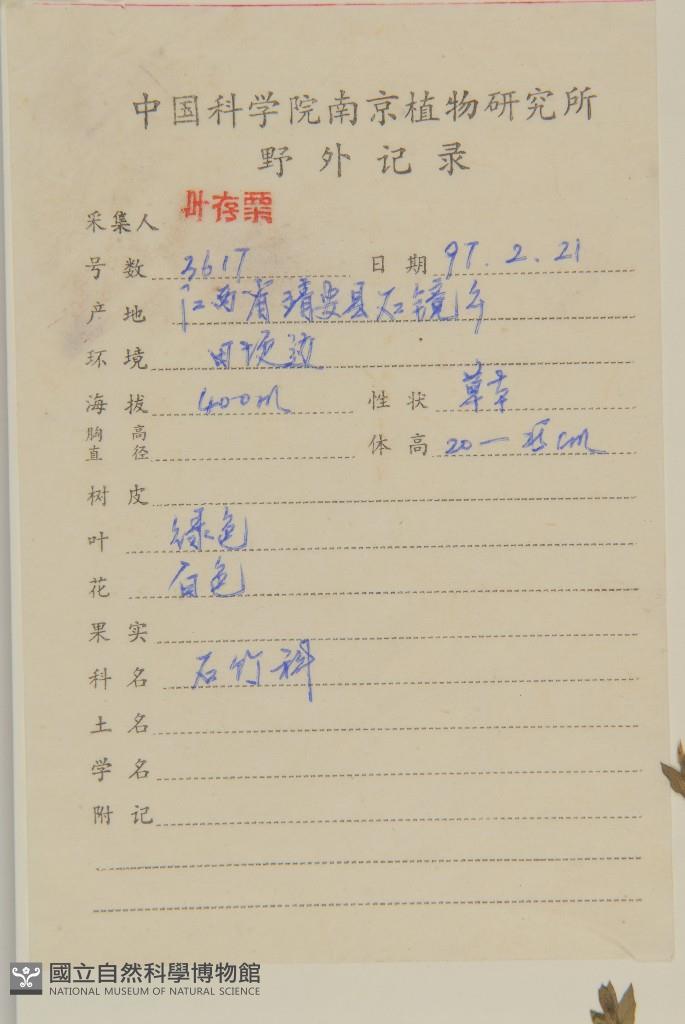 中国科学院南京植物研究所
野外记录
采集人 叶存粟
号数 3617 日期 97.2.21
产地 江西省靖安县石镜乡
环境 田埂边
海拔 400m 性状 草本
胸高直径 体高 20—25cm
树皮
叶 绿色
花 白色
果实
科名 石竹科
土名
学名
附记
國立自然科學博物館
NATIONAL MUSEUM OF NATURAL SCIENCE